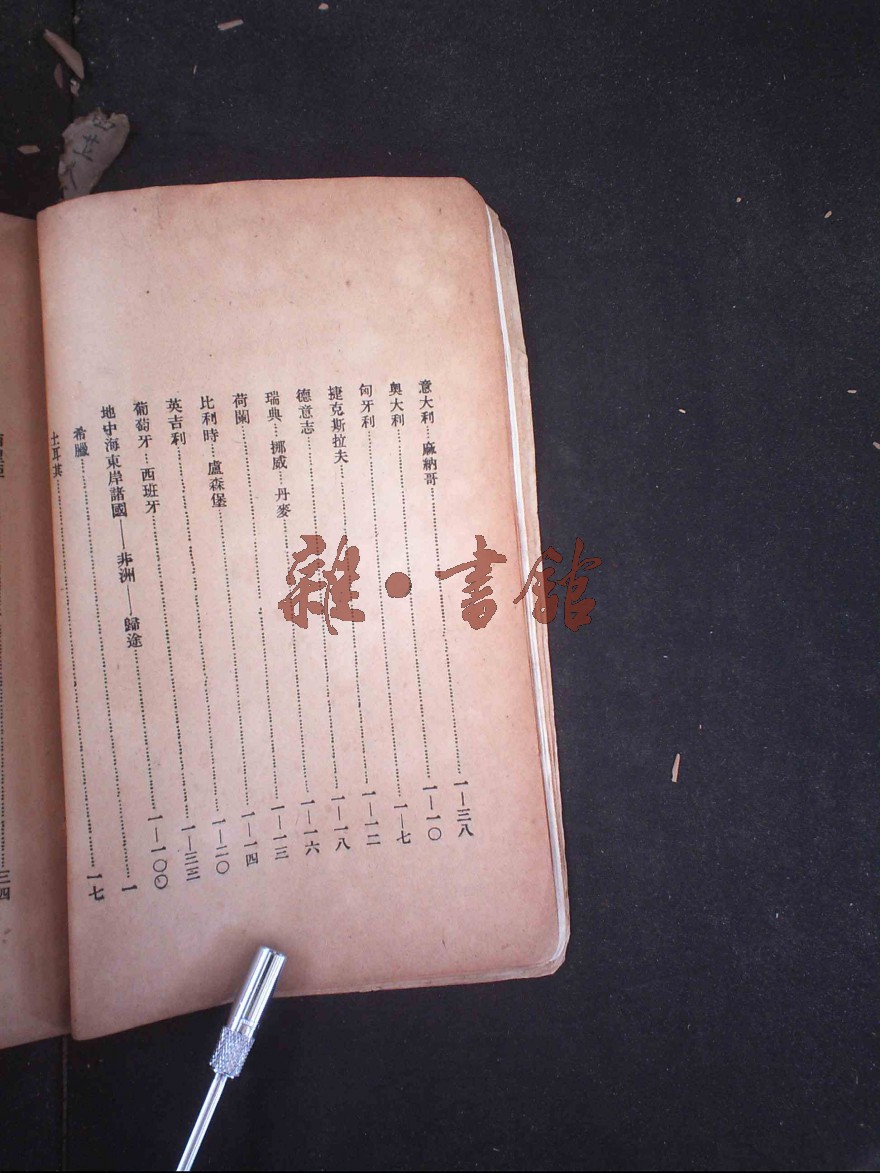 意大利…麻納哥……一—三八
奧大利……一—一〇
匈牙利……一—七
捷克斯拉夫……一—一二
德意志……一—一八
瑞典…挪威…丹麥……一—一六
荷蘭……一—一三
比利時…盧森堡……一—一四
英吉利……一—二〇
葡萄牙…西班牙……一—三三
地中海東岸諸國——非洲——歸途……一—一〇〇
希臘……一
土耳其……一七
三四
雜·書館